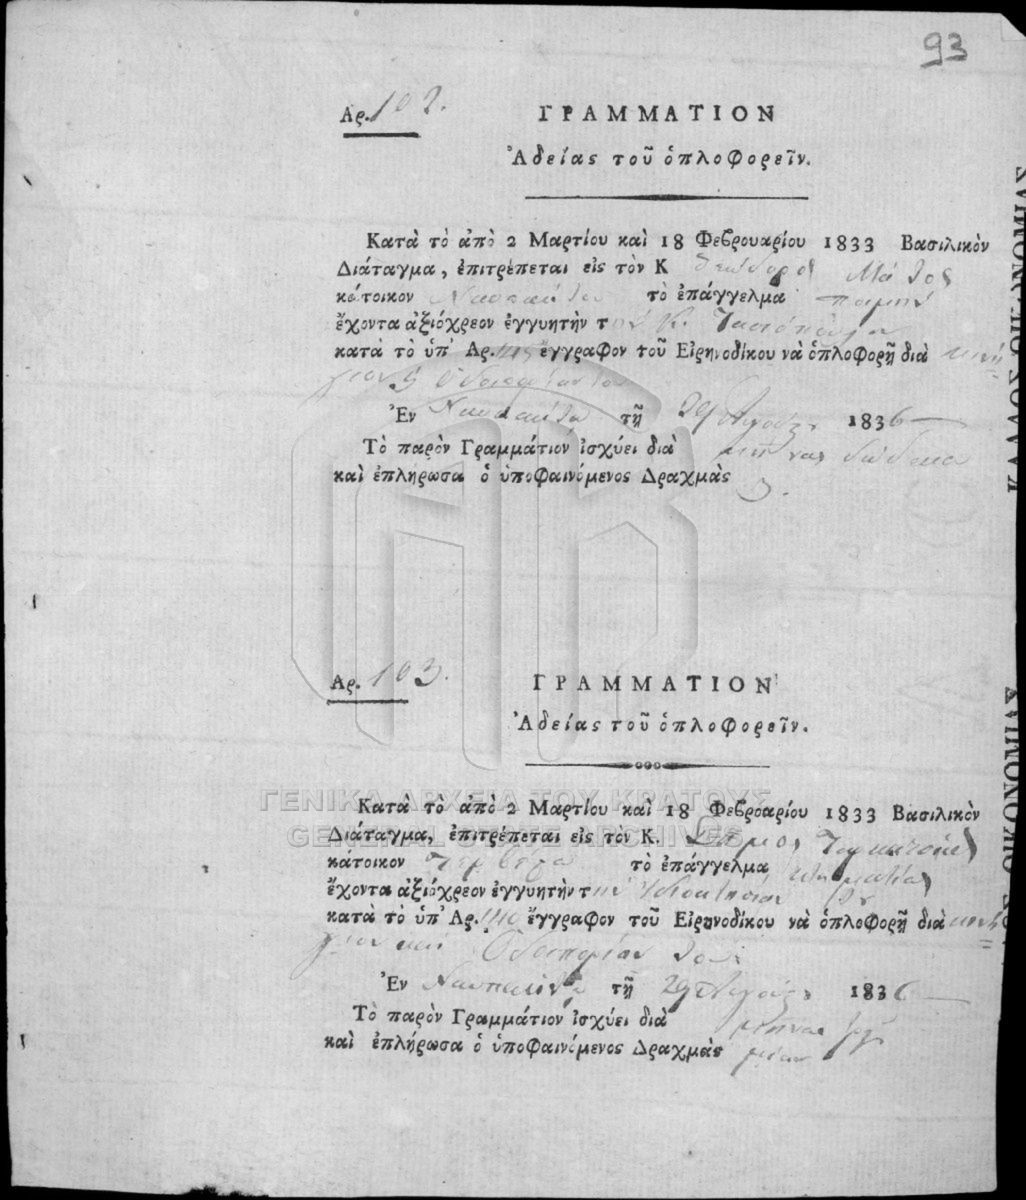 93
Αρ. 102.
ΓΡΑΜΜΑΤΙΟΝ
Ἀδείας τοῦ ὁπλοφορεῖν.
Κατὰ τὸ ἀπὸ 2 Μαρτίου καὶ 18 Φεβρουαρίου 1833 Βασιλικὸν
Διάταγμα, ἐπιτρέπεται εἰς τὸν Κ
κάτοικον Ναυπάκτου τὸ ἐπάγγελμα ποιμὴν
ἔχοντα ἀξιόχρεον ἐγγυητὴν τὸν Κ.
κατὰ τὸ ὑπ' Αρ. ἔγγραφον τοῦ Εἰρηνοδίκου νὰ ὁπλοφορῇ διὰ κυνή
Ἐν Ναυπάκτῳ τῇ 29 Αὐγούστου 1836
Τὸ παρὸν Γραμμάτιον ἰσχύει διὰ μῆνας δώδεκα
καὶ ἐπλήρωσα ὁ ὑποφαινόμενος Δραχμὰς 3.
Αρ. 103.
ΓΡΑΜΜΑΤΙΟΝ
Ἀδείας τοῦ ὁπλοφορεῖν.
ΓΕΝΙΚΑ ΑΡΧΕΙΑ ΤΟΥ ΚΡΑΤΟΥΣ
GENERAL STATE ARCHIVES
Κατὰ τὸ ἀπὸ 2 Μαρτίου καὶ 18 Φεβροαρίου 1833 Βασιλικὸν
Διάταγμα, ἐπιτρέπεται εἰς τὸν Κ.
κάτοικον τὸ ἐπάγγελμα κτηματίας
ἔχοντα ἀξιόχρεον ἐγγυητὴν τὴν ἰδιοκτησίαν του
κατὰ τὸ ὑπ' Αρ. 140 ἔγγραφον τοῦ Εἰρηνοδίκου νὰ ὁπλοφορῇ διὰ κυνή
γιον καὶ ὁδοιπορίαν του
Ἐν Ναυπάκτῳ τῇ 29 Αὐγούστου 1836
Τὸ παρὸν Γραμμάτιον ἰσχύει διὰ μῆνας
καὶ ἐπλήρωσα ὁ ὑποφαινόμενος Δραχμὰς μίαν